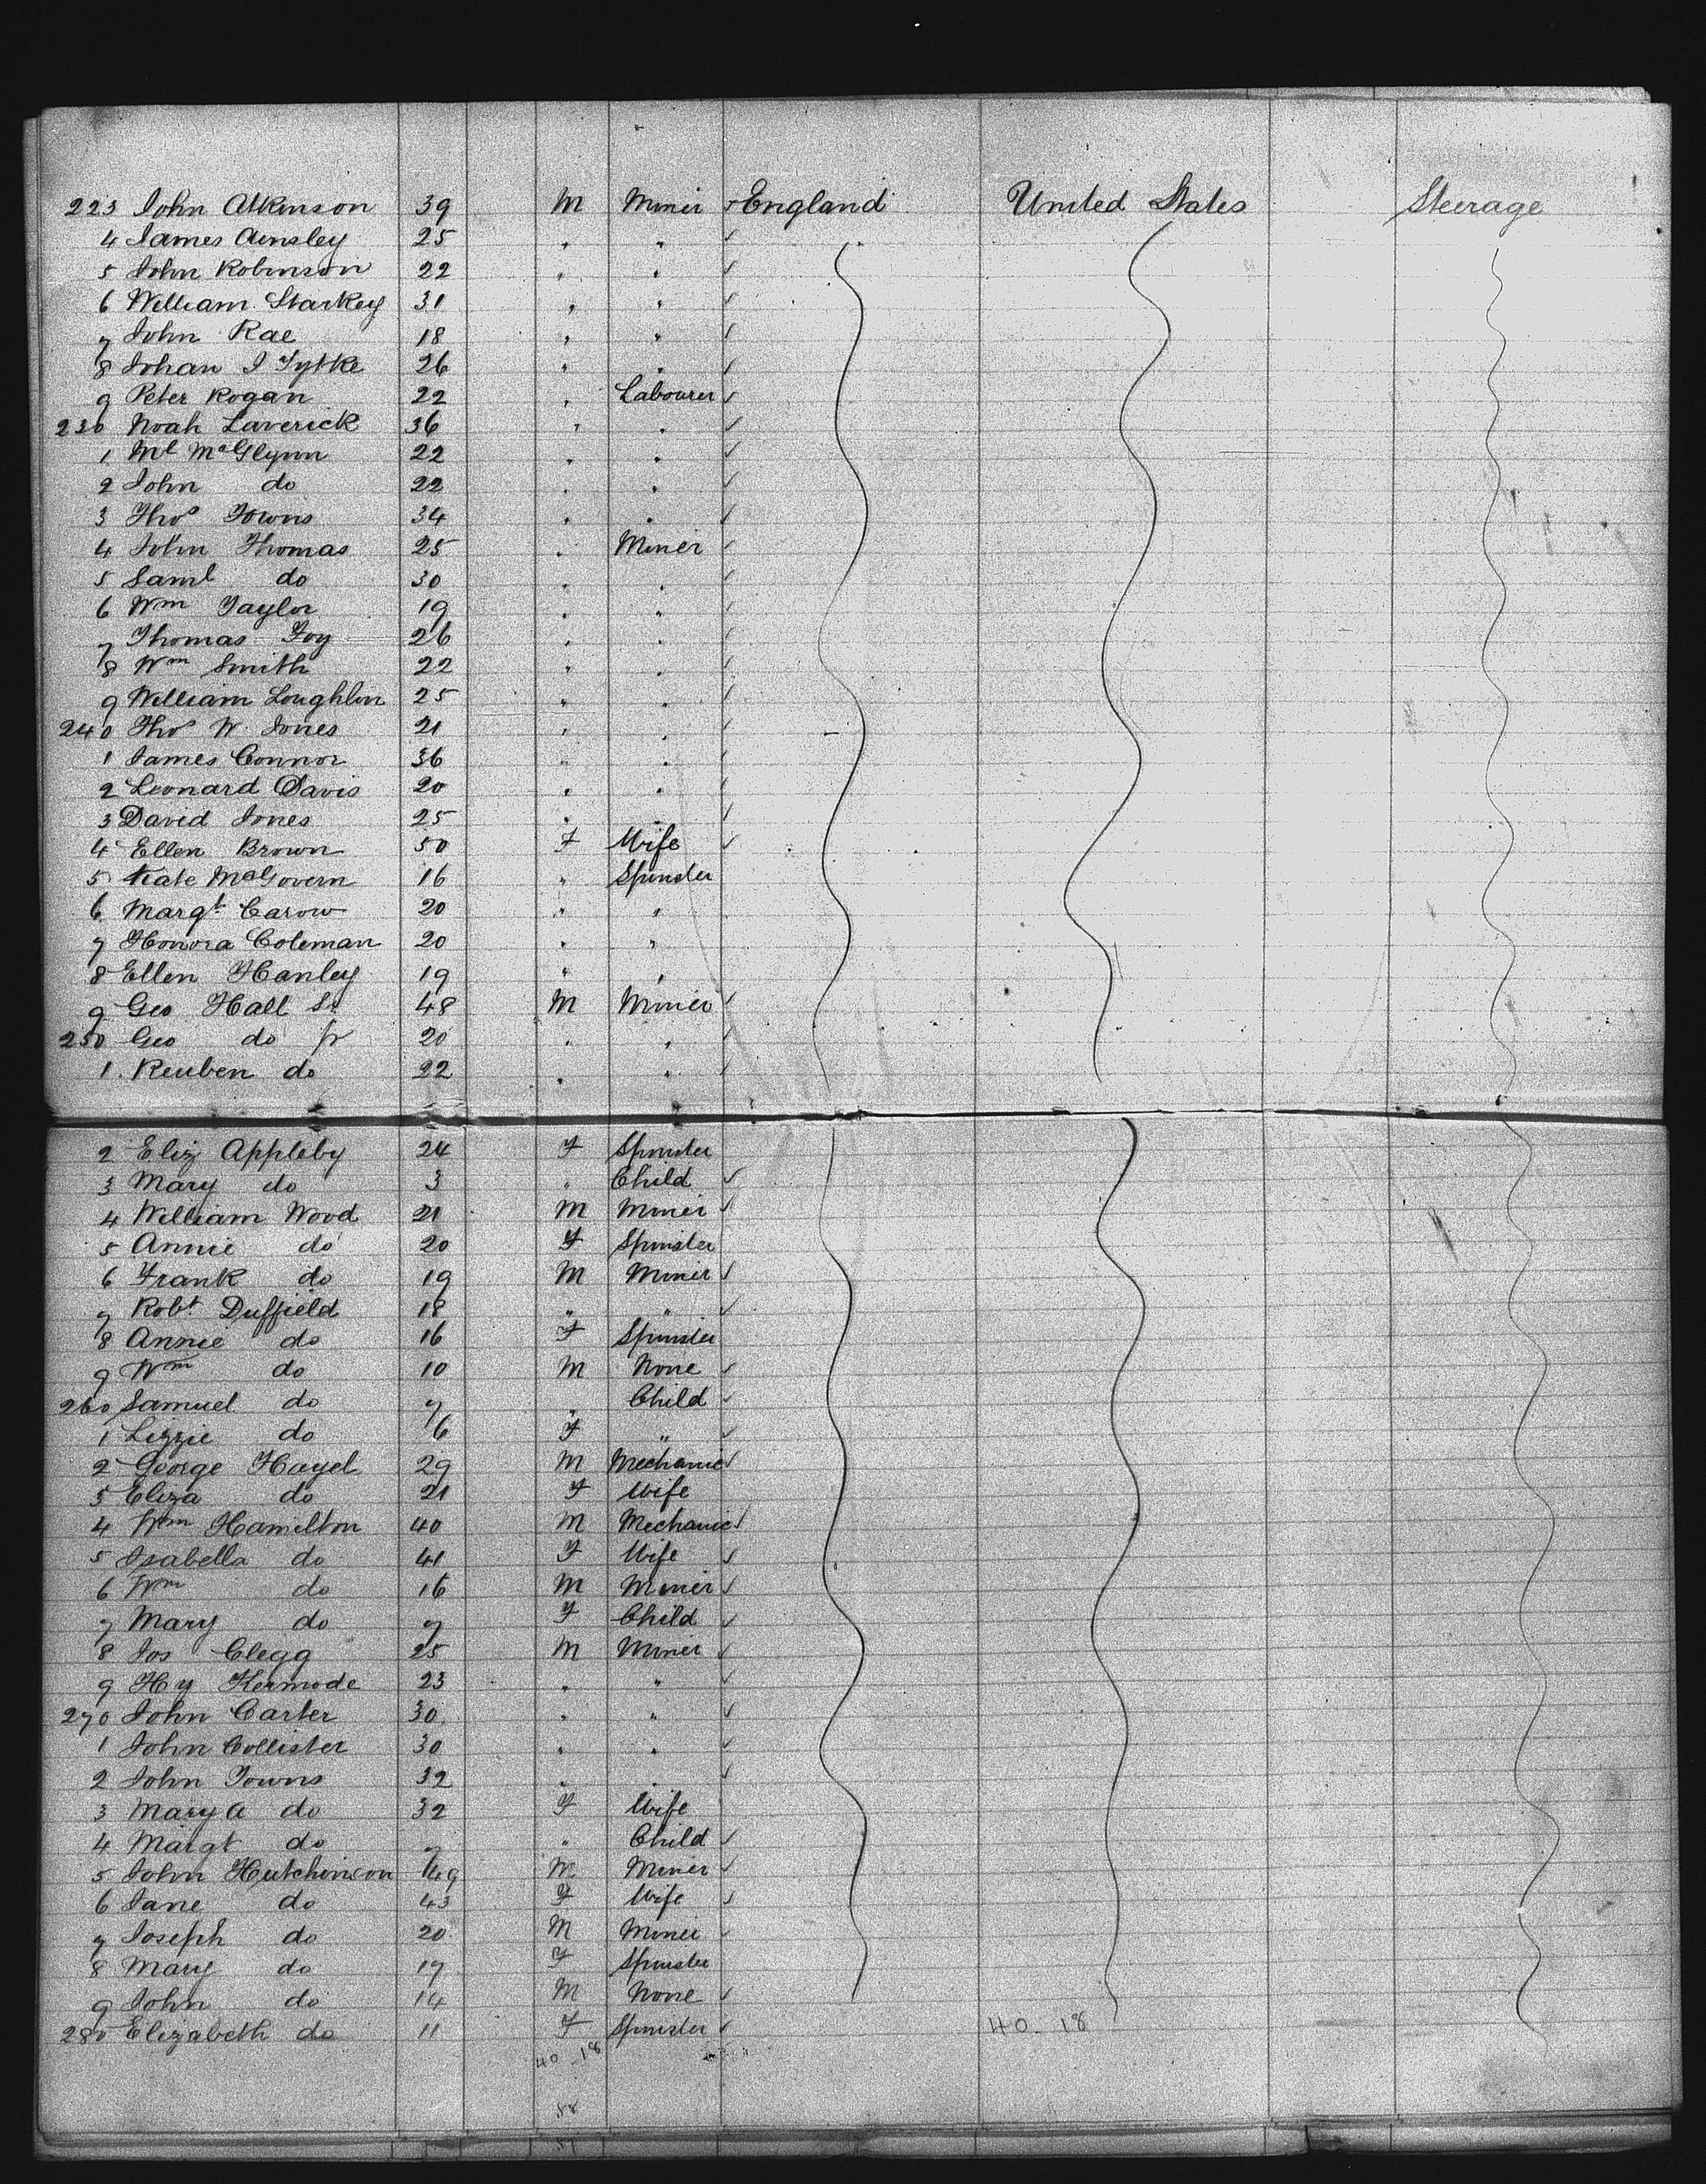 223 John Atkinson 39 M Miner England United States Steerage
4 James Ainsley 25 " "
5 John Robinson 22 " "
6 William Starkey 31 " "
7 John Rae 18 " "
8 Johan J 26 " "
9 Peter Rogan 22 " Labourer
230 Noah Laverick 36 " "
1 Ml McGlynn 22 " "
2 John do 22 " "
3 Thos Towns 34 " "
4 John Thomas 25 " Miner
5 Saml do 30 " "
6 Wm Taylor 19 " "
7 Thomas Foy 26 " "
8 Wm Smith 22 " "
9 William Loughlin 25 " "
240 Thos W. Jones 21 " "
1 James Connor 36 " "
2 Leonard Davis 20 " "
3 David Jones 25 " "
4 Ellen Brown 50 F Wife
5 Kate McGovern 16 " Spinster
6 Margt Carow 20 " "
7 Honora Coleman 20 " "
8 Ellen Hanley 19 " "
9 Geo Hall Sr 48 M Miner
250 Geo do Jr 20 " "
1 Reuben do 22 " "
2 Eliz Appleby 24 F Spinster
3 Mary do 3 " Child
4 William Wood 21 M Miner
5 Annie do 20 F Spinster
6 Frank do 19 M Miner
7 Robt Duffield 18 " "
8 Annie do 16 F Spinster
9 Wm do 10 M None
260 Samuel do 7 " Child
1 Lizzie do 6 F "
2 George Hayel 29 M Mechanic
3 Eliza do 21 F Wife
4 Wm Hamilton 40 M Mechanic
5 Isabella do 41 F Wife
6 Wm do 16 M Miner
7 Mary do 7 F Child
8 Jos Clegg 25 M Miner
9 Hy Kermode 23 " "
270 John Carter 30 " "
1 John Collister 30 " "
2 John Towns 32 " "
3 Mary A do 32 F Wife
4 Margt do 7 " Child
5 John Hutchinson 49 M Miner
6 Jane do 43 F Wife
7 Joseph do 20 M Miner
8 Mary do 19 F Spinster
9 John do 14 M None
280 Elizabeth do 11 F Spinster 40-18
40-18